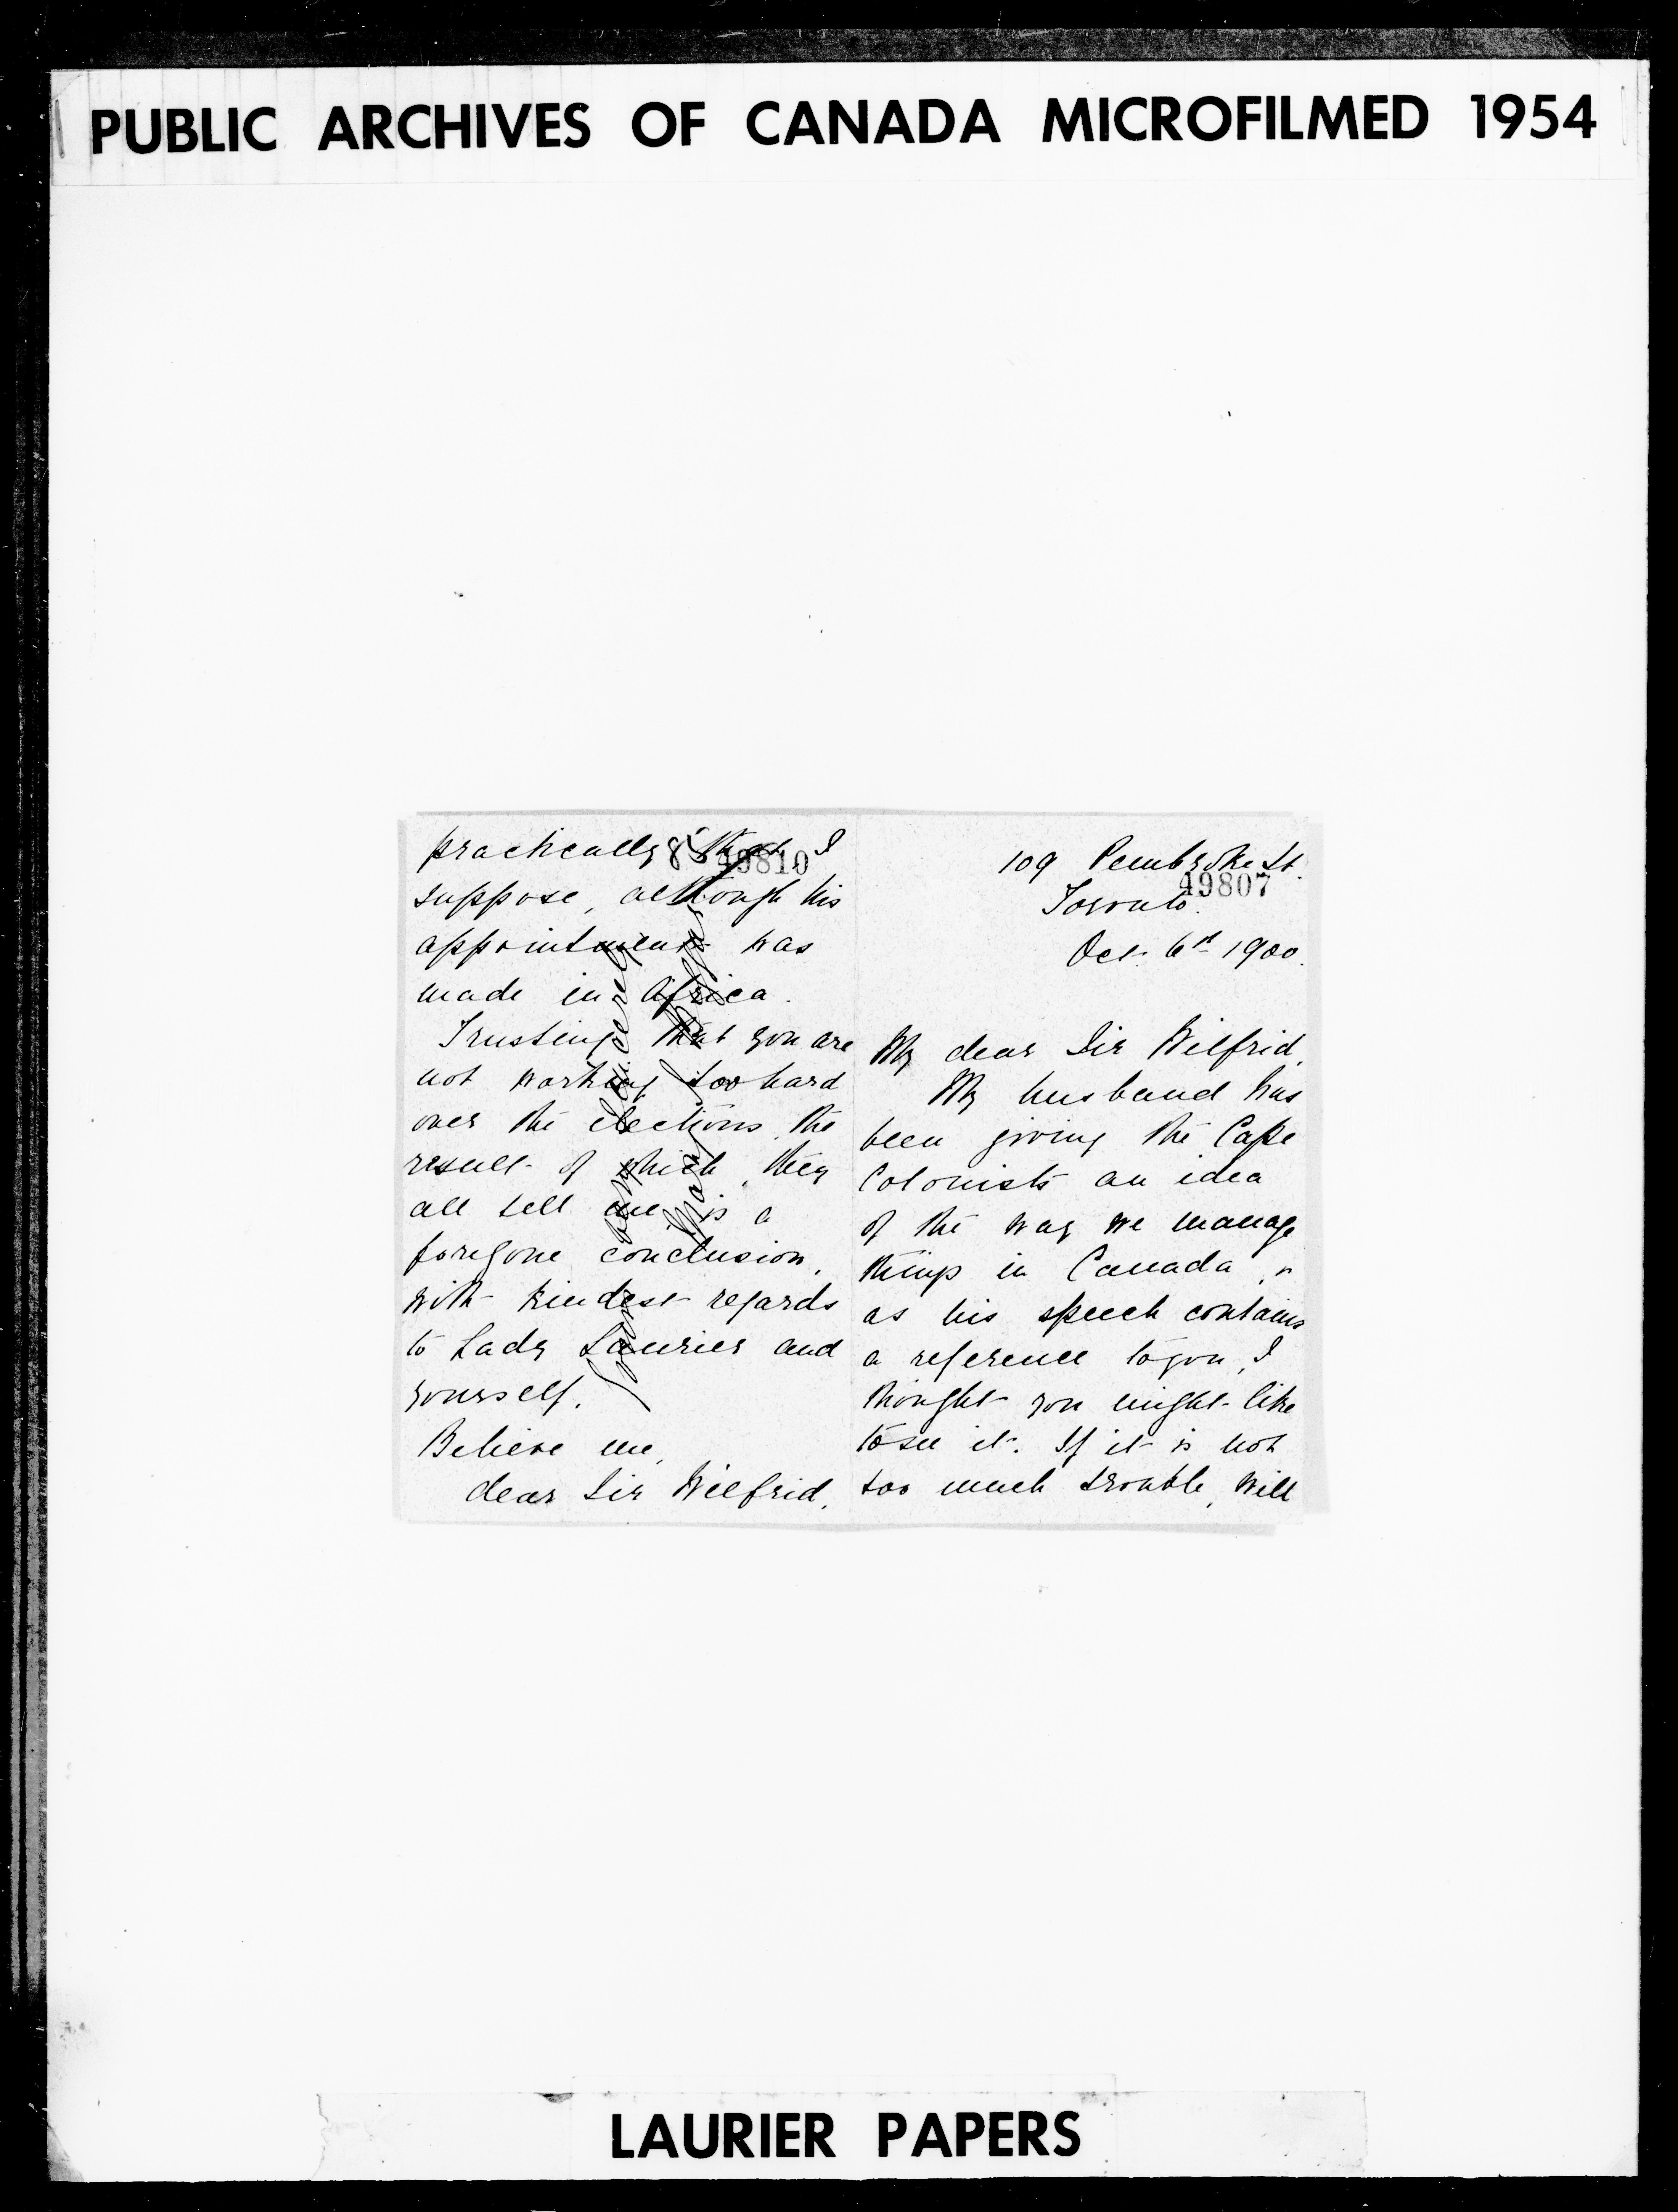 PUBLIC ARCHIVES OF CANADA MICROFILMED 1954
practically that I
85 49810
suppose, although his
appointment was
made in Africa.
Trusting that you are
not working too hard
over the elections, the
result of which, they
all tell me, is a
foregone conclusion,
with kindest regards
to Lady Laurier and
yourself.
Believe me,
dear Sir Wilfrid,
Yours
very sincerely
Mary
109 Pembroke St.
49807
Toronto.
Oct. 6th 1900.
My dear Sir Wilfrid,
My husband has
been giving the Cape
Colonists an idea
of the way we manage
things in Canada, &
as his speech contains
a reference to you, I
thought you might like
to see it. If it is not
too much trouble, will
LAURIER PAPERS